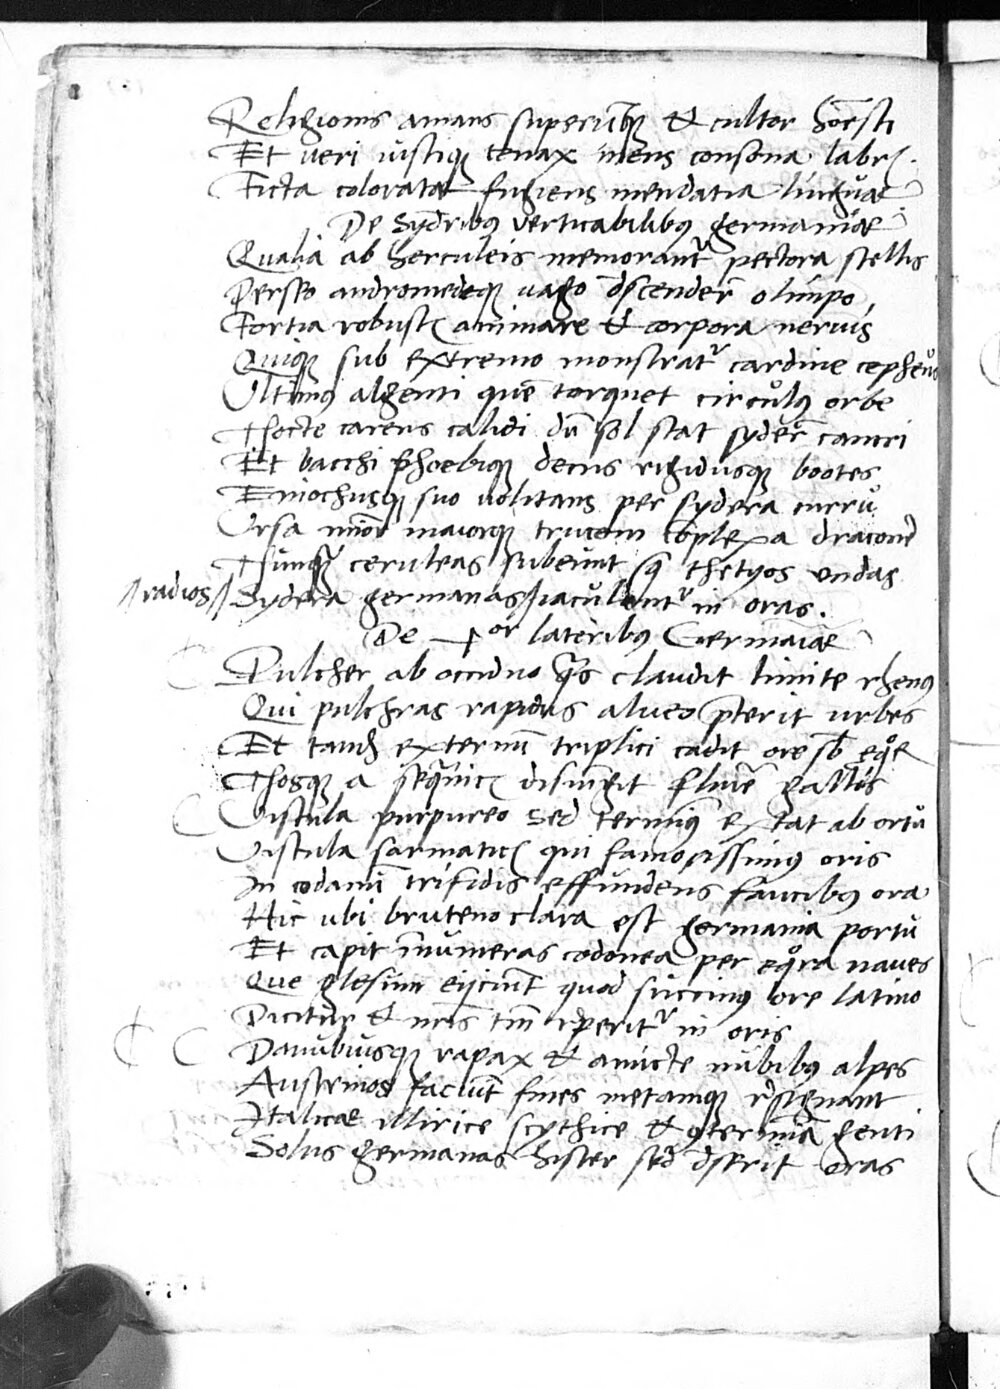 Religionis amans superūqȝ & cultor hōesti
Et veri iustiqȝ tenax mens consona labrę.
Ficta coloratæ fugiens mendatia linguæ
De Sydribꝰ verticabilibꝰ germaniæ
Qualia ab herculeis memorantʳ pectora stellis
Perseo andromedeqȝ vago dscender̄ olimpo
Fortia robustę animare & corpora neruis
Quiqȝ sub extremo monstratʳ cardine cepheus
Ultimꝰ algenti quē torquet circulꝰ orbe
Nocte carens calidi dū sol stat syder̄ cancri
Et bacchi phoebiqȝ decus rigidusqȝ bootes
Eniochusqȝ suo uolitans per sydera curru
Ursa minor maiorqȝ trucem cōplexa draconē
Nunqᷓ ceruleas subeunt qᷓ thetyos undas
//radios// Sydera germanas//iaculantʳ in oras.
De 4or lateribꝰ Germaiæ
Pulcher ab occiduo qᷓs claudit limite rhenꝰ
Qui pulchras rapidus alueo p̄terit urbes
Et tandē externū triplici cadit ore sb̄ eqͦr
Nosqȝ a seqᷓnicę disiūgit flumē gallis
Vistula purpureo sed terminꝰ extat ab ortu
Vistula sarmaticę qui famosissimꝰ oris
In codanū trifidis effundens faucibꝰ ora
Hic ubi bruteno clara est germania portu
Et capit īnumeras codonea per eqͦra naues
Que glesum eijciūt quod succinꝰ ore latino
Dicitur & nr̄is tm̄ rperitʳ in oris
Danubiusqȝ rapax & amicte nubibꝰ alpes
Austrinos faciūt fines metamqȝ rsignant
Italicæ illirice scythice & ꝯterminā genti
Solus germanas hister sed dserit oras